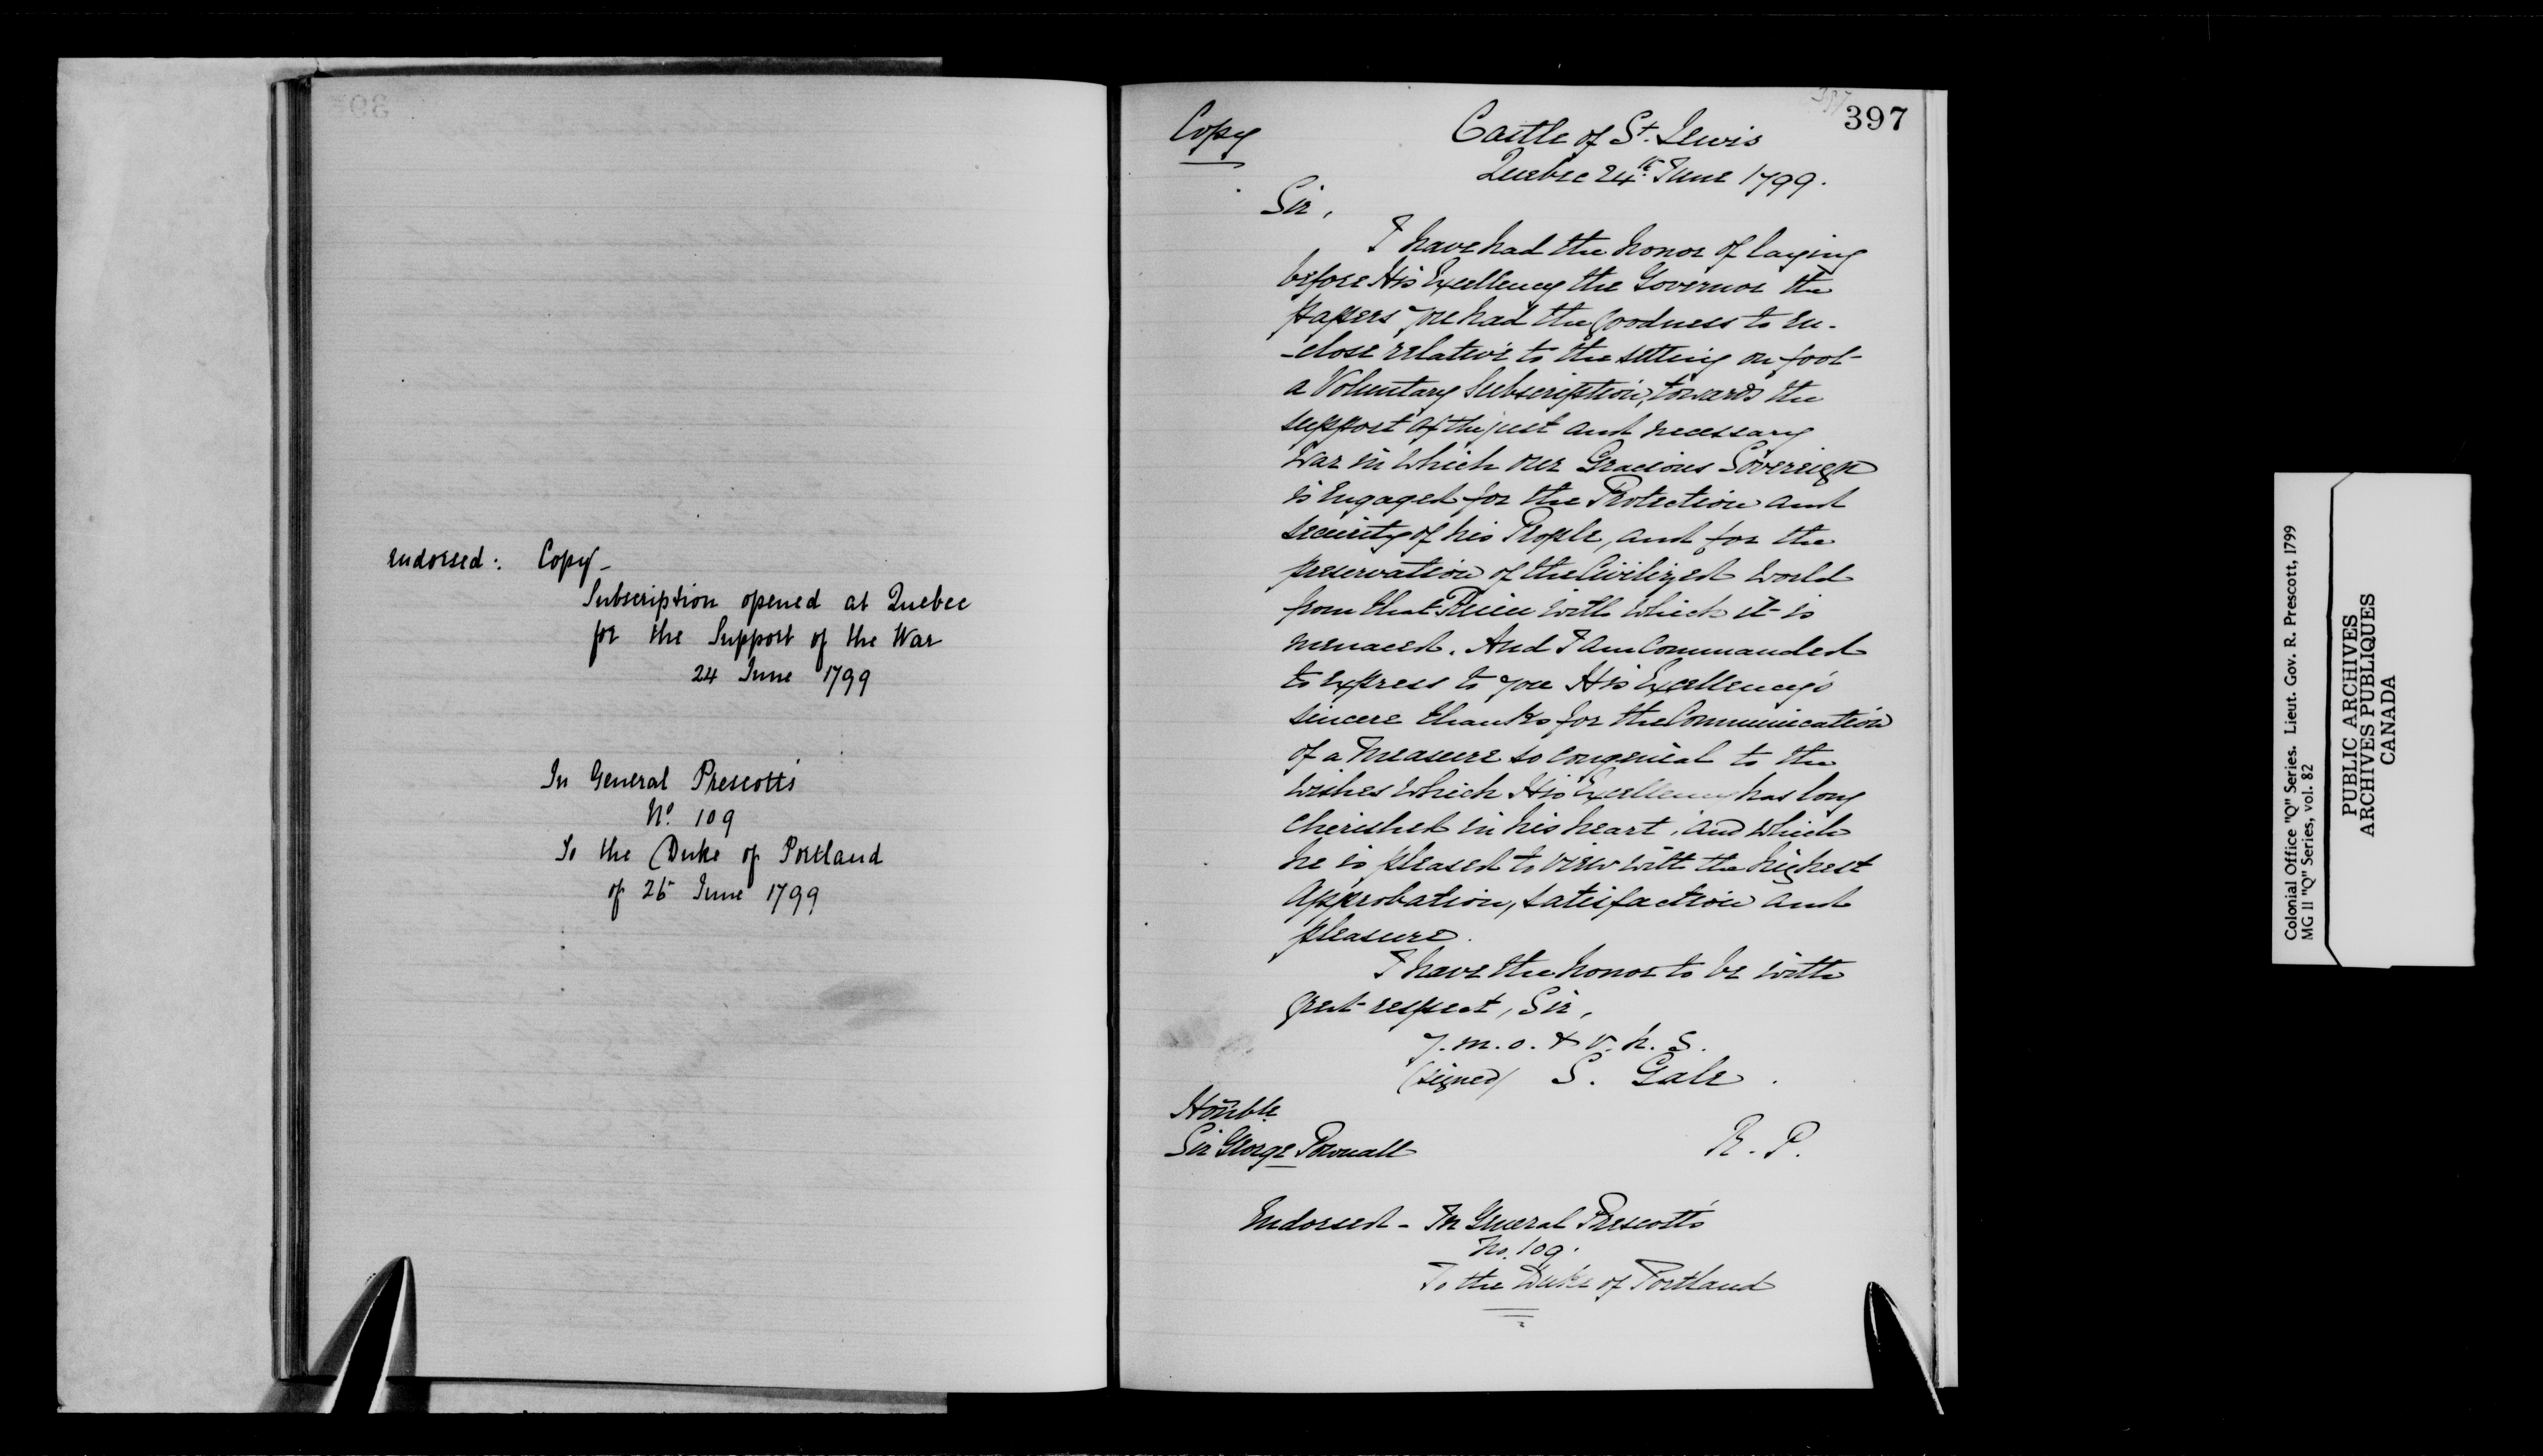 endorsed: Copy -
Subscription opened at Quebec
for the Support of the War
24 June 1799
In General Prescott's
No. 109
To the Duke of Portland
of 25 June 1799
397
Copy
Castle of St. Lewis
Quebec 24th June 1799.
Sir,
I have had the honor of laying
before His Excellency the Governor the
papers you had the goodness to en-
-close relative to the setting on foot
a Voluntary Subscription, towards the
support of the just and necessary
War in which our Gracious Sovereign
is Engaged for the Protection and
security of his People, and for the
preservation of the Civilized World
from that Ruin with which it is
menaced. And I am Commanded
to express to you His Excellency's
sincere thanks for the Communication
of a Measure so congenial to the
wishes which His Excellency has long
cherished in his heart, and which
he is pleased to view with the highest
approbation, satisfaction and
pleasure.
I have the honor to be with
great respect, Sir,
y. m. o. & v. h. S.
(signed) S. Gale.
Honble.
Sir George Pownall
R. P.
Endorsed - In General Prescott's
No. 109.
To the Duke of Portland
Colonial Office "Q" Series. Lieut. Gov. R. Prescott, 1799
MG 11 "Q" Series, vol. 82
PUBLIC ARCHIVES
ARCHIVES PUBLIQUES
CANADA